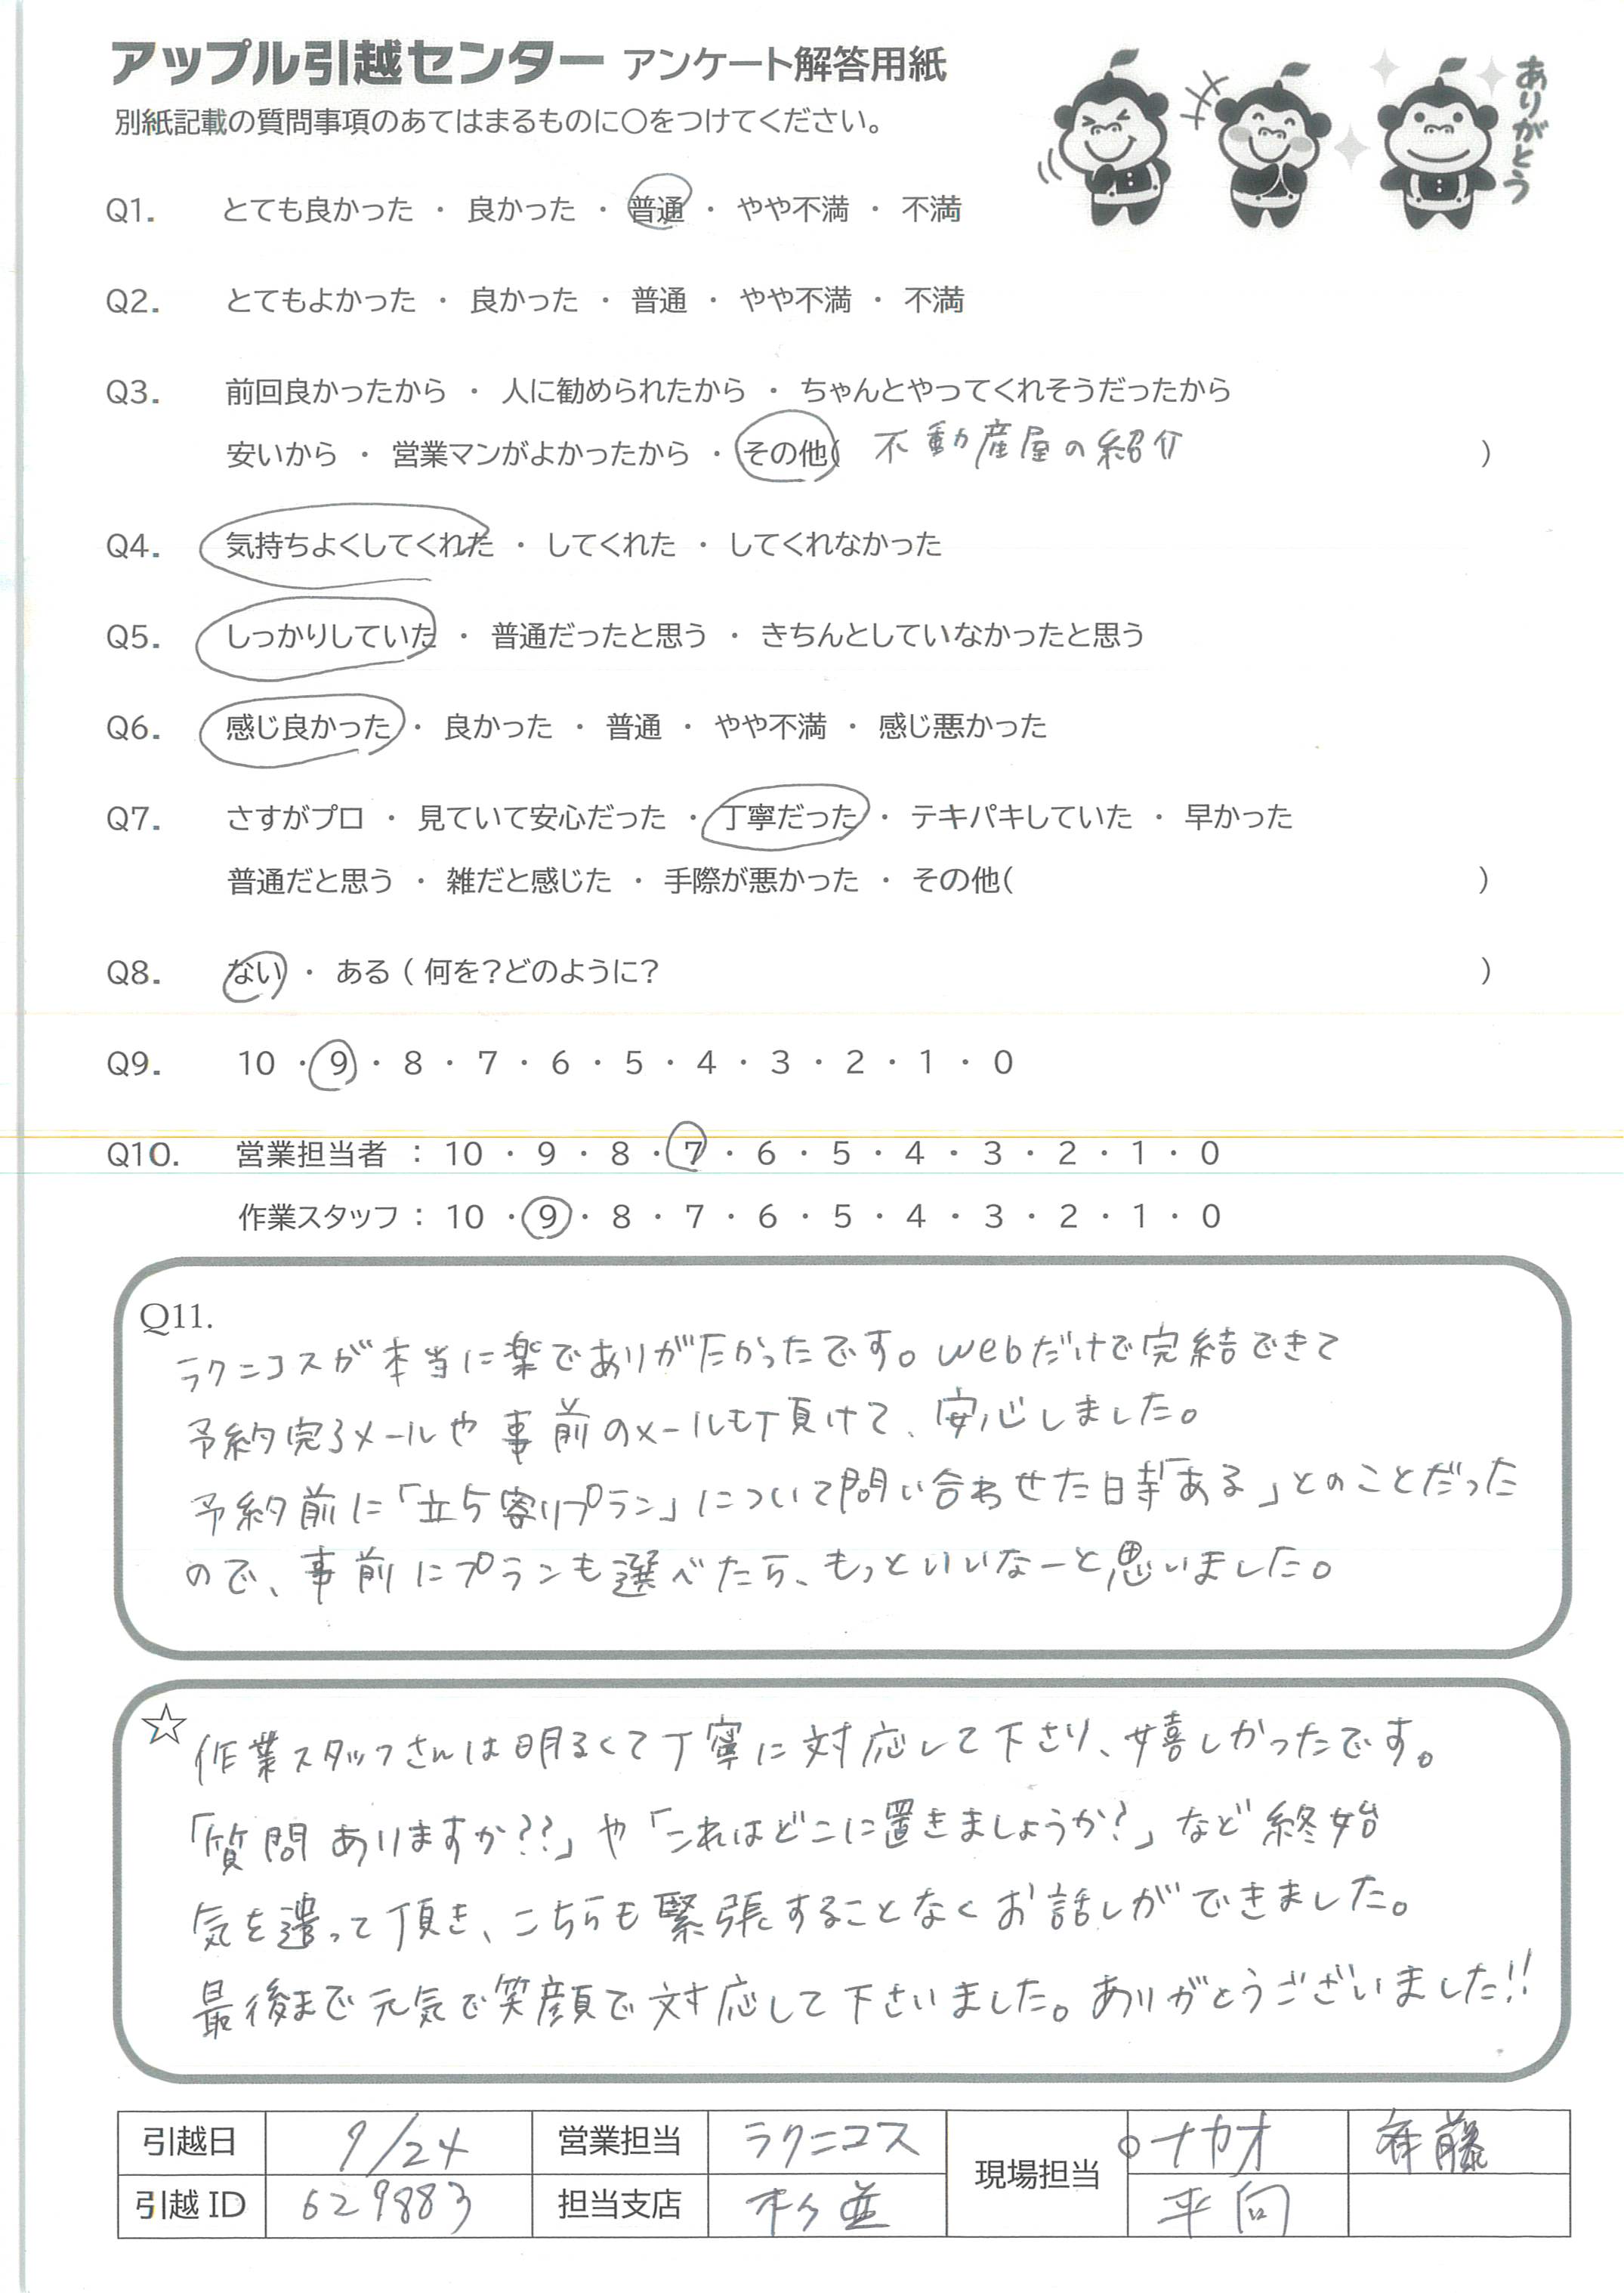 アップル引越センター アンケート解答用紙
別紙記載の質問事項のあてはまるものに○をつけてください。
ありがとう
Q1. とても良かった ・ 良かった ・ 普通 ・ やや不満 ・ 不満
Q2. とてもよかった ・ 良かった ・ 普通 ・ やや不満 ・ 不満
Q3. 前回良かったから ・ 人に勧められたから ・ ちゃんとやってくれそうだったから
安いから ・ 営業マンがよかったから ・ その他( 不動産屋の紹介 )
Q4. 気持ちよくしてくれた ・ してくれた ・ してくれなかった
Q5. しっかりしていた ・ 普通だったと思う ・ きちんとしていなかったと思う
Q6. 感じ良かった ・ 良かった ・ 普通 ・ やや不満 ・ 感じ悪かった
Q7. さすがプロ ・ 見ていて安心だった ・ 丁寧だった ・ テキパキしていた ・ 早かった
普通だと思う ・ 雑だと感じた ・ 手際が悪かった ・ その他( )
Q8. ない ・ ある ( 何を?どのように? )
Q9. 10 ・ 9 ・ 8 ・ 7 ・ 6 ・ 5 ・ 4 ・ 3 ・ 2 ・ 1 ・ 0
Q10. 営業担当者 : 10 ・ 9 ・ 8 ・ 7 ・ 6 ・ 5 ・ 4 ・ 3 ・ 2 ・ 1 ・ 0
作業スタッフ : 10 ・ 9 ・ 8 ・ 7 ・ 6 ・ 5 ・ 4 ・ 3 ・ 2 ・ 1 ・ 0
Q11.
ラクニコスが本当に楽でありがたかったです。webだけで完結できて
予約完了メールや事前のメールも頂けて、安心しました。
予約前に「立ち寄りプラン」について問い合わせた時「ある」とのことだった
ので、事前にプランも選べたら、もっといいなーと思いました。
☆ 作業スタッフさんは明るくて丁寧に対応して下さり、嬉しかったです。
「質問ありますか??」や「これはどこに置きましょうか?」など終始
気を遣って頂き、こちらも緊張することなくお話しができました。
最後まで元気で笑顔で対応して下さいました。ありがとうございました!!
引越日 9/24 営業担当 ラクニコス 現場担当 ○ナカオ 斉藤
引越ID 629883 担当支店 杉並 平向